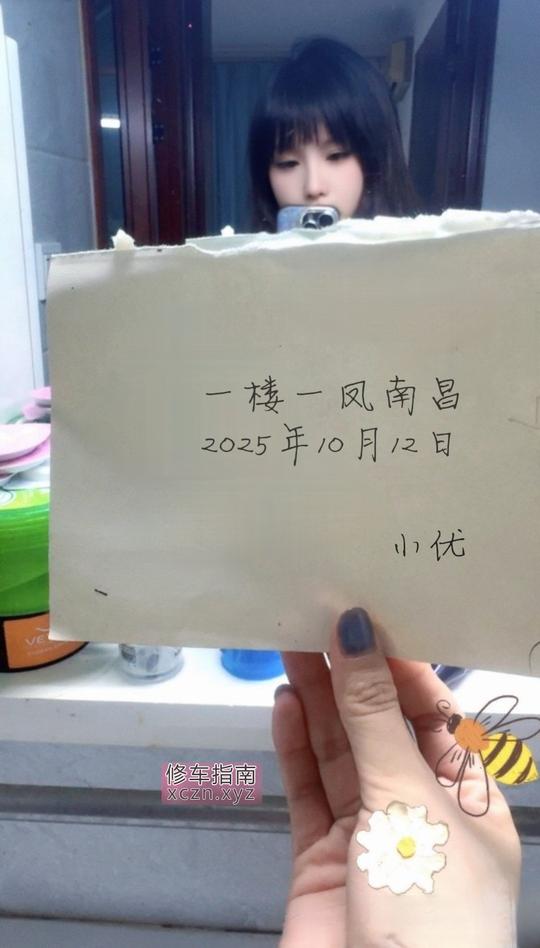 一楼一凤南昌
2025年10月12日
小优
VE
修车指南
xczn.xyz